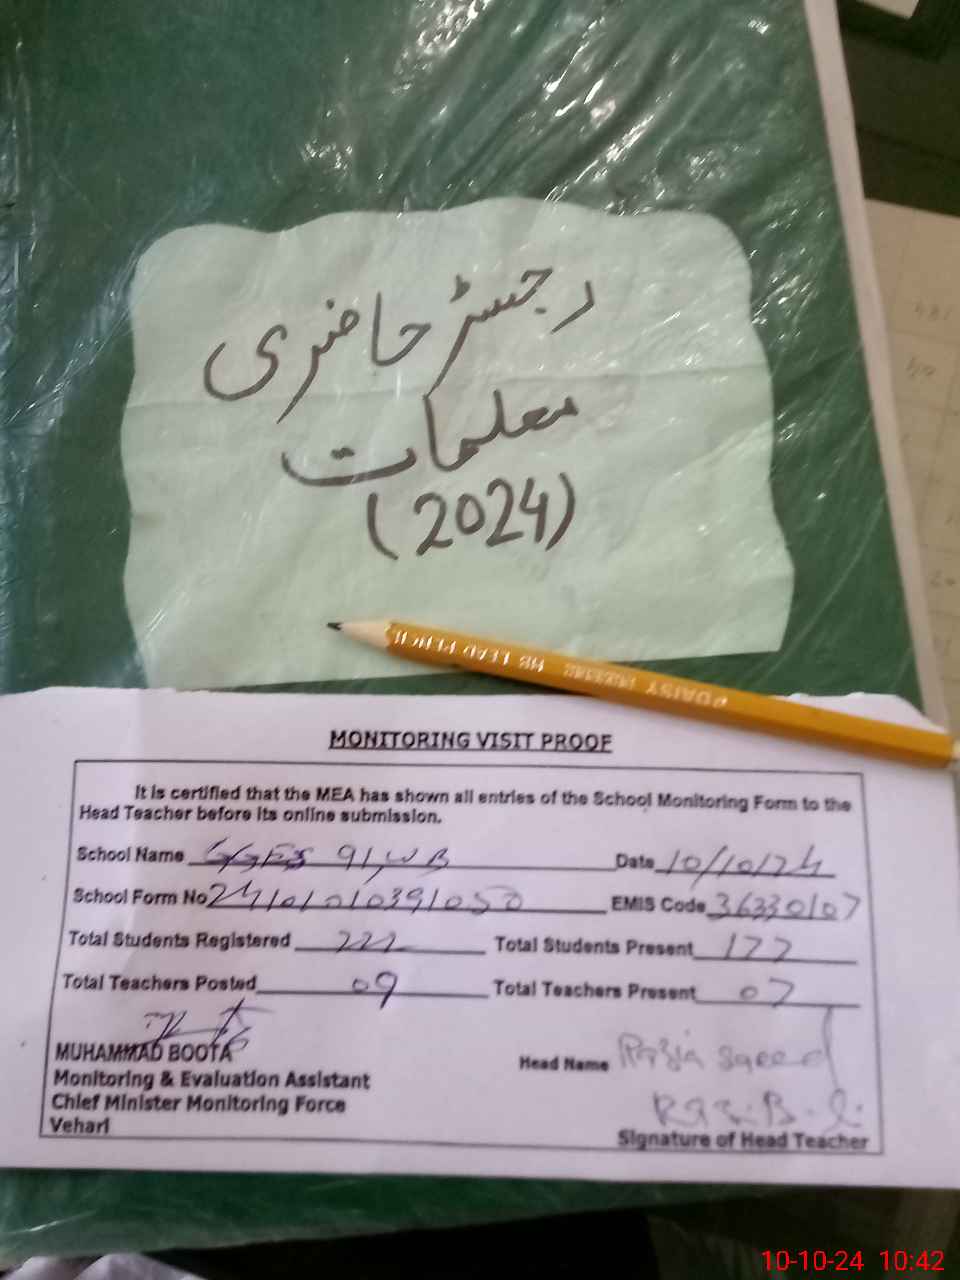 رجسٹر حاضری
معلمات
(2024)
DAISY HB LEAD PENCIL
MONITORING VISIT PROOF
It is certified that the MEA has shown all entries of the School Monitoring Form to the
Head Teacher before its online submission.
School Name GGES 91/WB Date 10/10/24
School Form No 24101010391050 EMIS Code 36330107
Total Students Registered 222 Total Students Present 177
Total Teachers Posted 09 Total Teachers Present 07
MUHAMMAD BOOTA
Head Name Razia Saeed
Monitoring & Evaluation Assistant
Chief Minister Monitoring Force
Vehari
Signature of Head Teacher
10-10-24 10:42